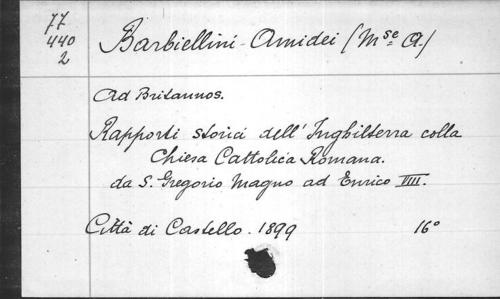 77
440
2
Barbiellini-Amidei (Mse A.)
Ad Britannos.
Rapporti storici dell'Inghilterra colla
Chiesa Cattolica Romana.
da S. Gregorio Magno ad Enrico VIII.
Città di Castello. 1899 16°